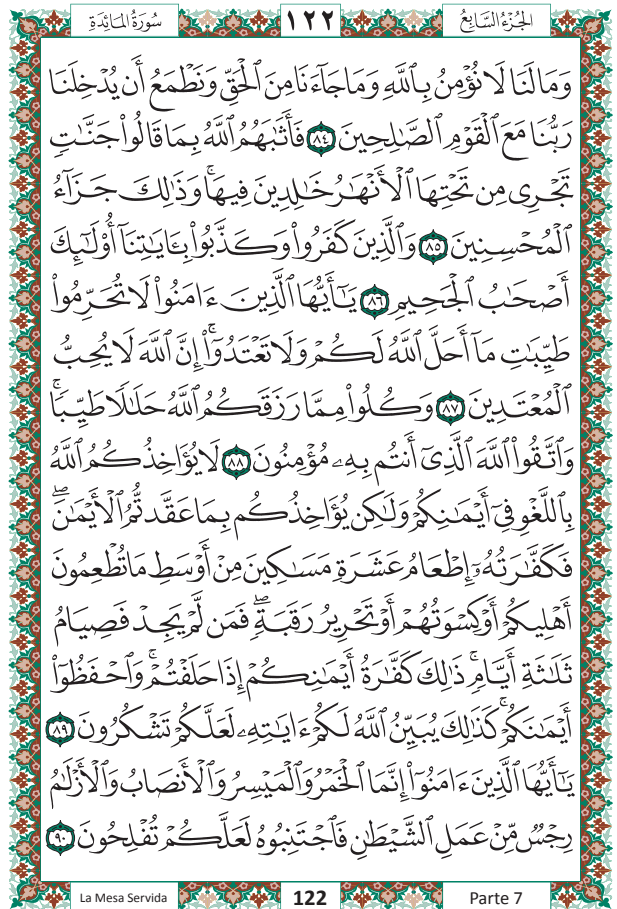 الجُزْءُ السَّابِعُ ١٢٢ سُورَةُ المَائِدَةِ
وَمَا لَنَا لَا نُؤْمِنُ بِٱللَّهِ وَمَا جَآءَنَا مِنَ ٱلْحَقِّ وَنَطْمَعُ أَن يُدْخِلَنَا
رَبُّنَا مَعَ ٱلْقَوْمِ ٱلصَّـٰلِحِينَ ٨٤ فَأَثَـٰبَهُمُ ٱللَّهُ بِمَا قَالُوا۟ جَنَّـٰتٍ
تَجْرِى مِن تَحْتِهَا ٱلْأَنْهَـٰرُ خَـٰلِدِينَ فِيهَا ۚ وَذَٰلِكَ جَزَآءُ
ٱلْمُحْسِنِينَ ٨٥ وَٱلَّذِينَ كَفَرُوا۟ وَكَذَّبُوا۟ بِـَٔايَـٰتِنَآ أُو۟لَـٰٓئِكَ
أَصْحَـٰبُ ٱلْجَحِيمِ ٨٦ يَـٰٓأَيُّهَا ٱلَّذِينَ ءَامَنُوا۟ لَا تُحَرِّمُوا۟
طَيِّبَـٰتِ مَآ أَحَلَّ ٱللَّهُ لَكُمْ وَلَا تَعْتَدُوٓا۟ ۚ إِنَّ ٱللَّهَ لَا يُحِبُّ
ٱلْمُعْتَدِينَ ٨٧ وَكُلُوا۟ مِمَّا رَزَقَكُمُ ٱللَّهُ حَلَـٰلًا طَيِّبًا ۚ
وَٱتَّقُوا۟ ٱللَّهَ ٱلَّذِىٓ أَنتُم بِهِۦ مُؤْمِنُونَ ٨٨ لَا يُؤَاخِذُكُمُ ٱللَّهُ
بِٱللَّغْوِ فِىٓ أَيْمَـٰنِكُمْ وَلَـٰكِن يُؤَاخِذُكُم بِمَا عَقَّدتُّمُ ٱلْأَيْمَـٰنَ ۖ
فَكَفَّـٰرَتُهُۥٓ إِطْعَامُ عَشَرَةِ مَسَـٰكِينَ مِنْ أَوْسَطِ مَا تُطْعِمُونَ
أَهْلِيكُمْ أَوْ كِسْوَتُهُمْ أَوْ تَحْرِيرُ رَقَبَةٍ ۖ فَمَن لَّمْ يَجِدْ فَصِيَامُ
ثَلَـٰثَةِ أَيَّامٍ ۚ ذَٰلِكَ كَفَّـٰرَةُ أَيْمَـٰنِكُمْ إِذَا حَلَفْتُمْ ۚ وَٱحْفَظُوٓا۟
أَيْمَـٰنَكُمْ ۚ كَذَٰلِكَ يُبَيِّنُ ٱللَّهُ لَكُمْ ءَايَـٰتِهِۦ لَعَلَّكُمْ تَشْكُرُونَ ٨٩
يَـٰٓأَيُّهَا ٱلَّذِينَ ءَامَنُوٓا۟ إِنَّمَا ٱلْخَمْرُ وَٱلْمَيْسِرُ وَٱلْأَنصَابُ وَٱلْأَزْلَـٰمُ
رِجْسٌ مِّنْ عَمَلِ ٱلشَّيْطَـٰنِ فَٱجْتَنِبُوهُ لَعَلَّكُمْ تُفْلِحُونَ ٩٠
La Mesa Servida 122 Parte 7